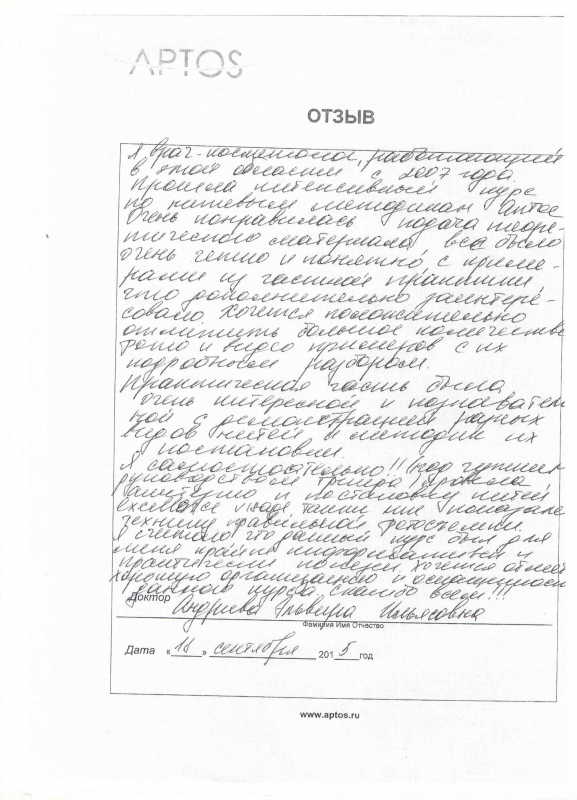 APTOS
ОТЗЫВ
Я врач-косметолог, работающий
в этой области с 2007 года.
Прошла интенсивный курс
по нитевым методикам Аптос
Очень понравилась подача теоре-
тического материала все было
очень четко и понятно с приме-
рами из частной практики
что дополнительно заинтере-
совало. Хочется положительно
отметить большое количество
фото и видео примеров с их
подробным разбором.
Практическая часть была
очень интересной и познаватель
ной с демонстрацией разных
видов нитей и методик их
постановки.
Я самостоятельно!! (под чутким
руководством тренера) провела
анестезию и постановку нитей
excellence visage, также мне показали
технику правильной фотосъемки.
Я считаю что данный курс был для
меня крайне информативным и
практически полезен. Хочется отметить
хорошую организацию и
данного курса. Спасибо всем!!!
Доктор Эльвира Ильясовна
Фамилия Имя Отчество
Дата « » сентября 2015 год
www.aptos.ru